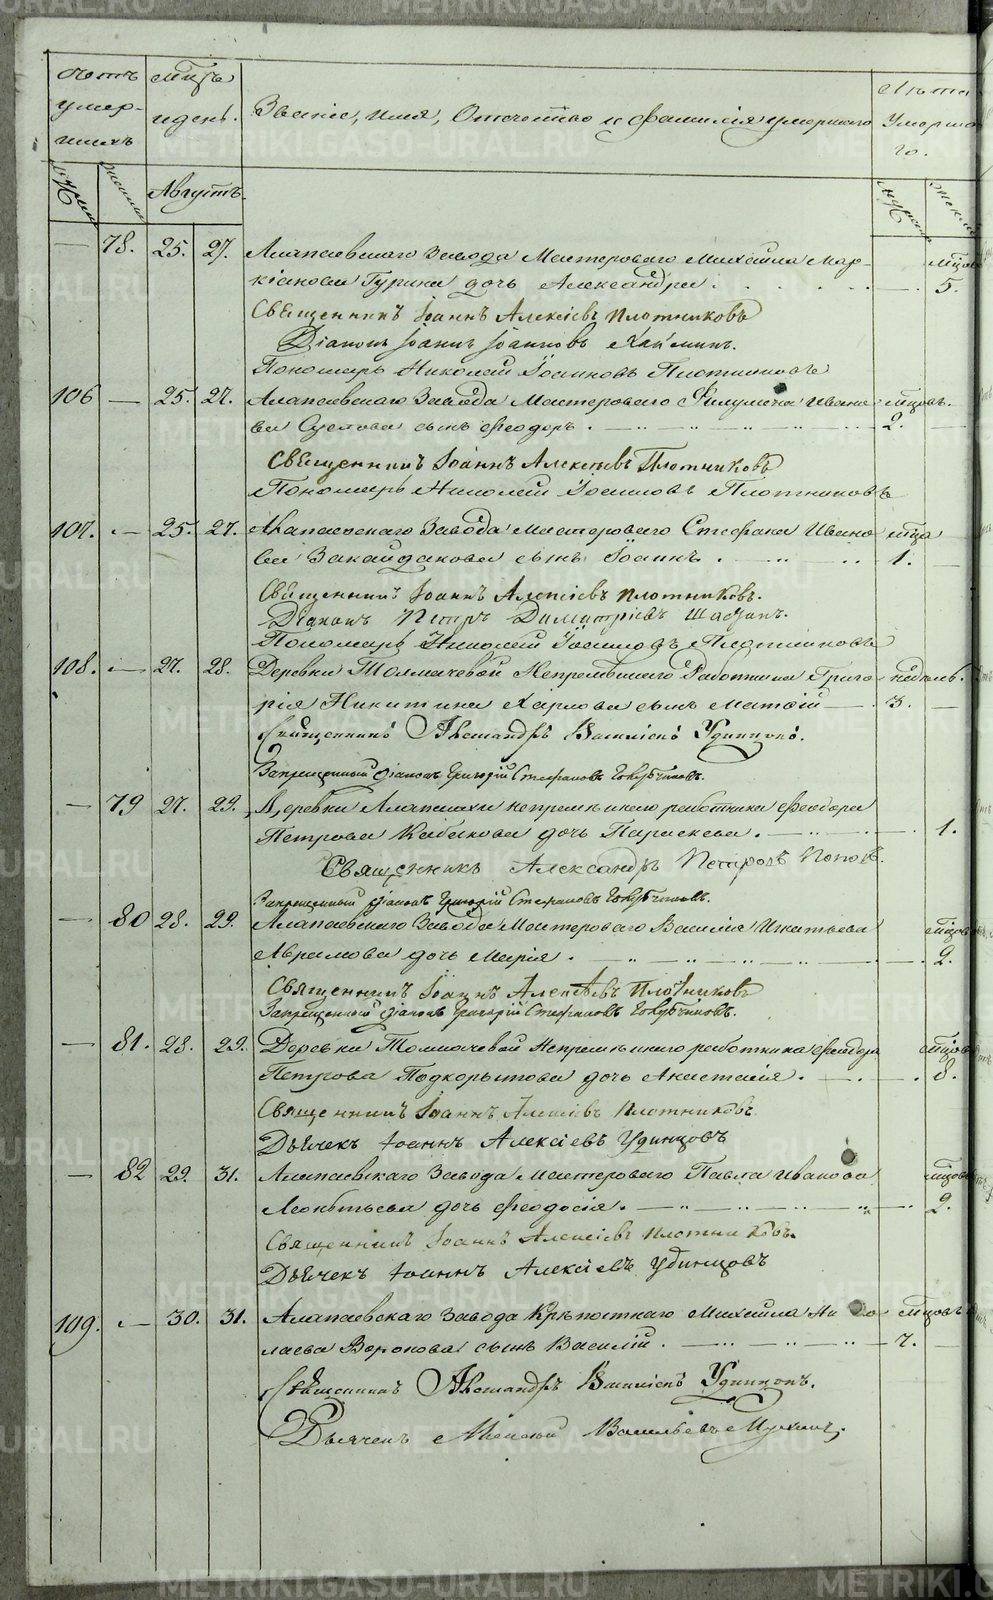 METRIKI.GASO-URAL.RU
Счетъ умер-шихъ
Мѣсяцъ и день.
Званіе, имя, Отечество и фамилія умершаго
Лѣта Умерша-го.
Августъ.
— 78. 25. 27. Алапаевскаго Завода Мастероваго Михаила Мар- мцовъ
кіанова Гурина дочь Александра. 5.
Священникъ Іоаннъ Алексіевъ Плотниковъ
Діаконъ Іоаннъ Іоанновъ
Пономарь Николай Іоанновъ Плотниковъ
106 — 25. 27. Алапаевскаго Завода Мастероваго Ивано- мцовъ.
ва сынъ Феодоръ. 2.
Священникъ Іоаннъ Алексіевъ Плотниковъ
Пономарь Николай Іоанновъ Плотниковъ
107. — 25. 27. Алапаевскаго Завода Мастероваго Стефана Ивано- мца
ва сынъ Іоаннъ. 1.
Священникъ Іоаннъ Алексіевъ Плотниковъ.
Діаконъ Петръ Димитріевъ
Пономарь Николай Іоанновъ Плотниковъ
108. — 27. 28. Деревни Толмачевой Непремѣннаго Работника Григо- недѣль.
рія Никитина сынъ Матѳій 3.
Священникъ Александръ Василіевъ Удинцовъ.
Запрещенный діаконъ Григорій Стефановъ Голубчиковъ.
— 79 27. 29. Деревни Алапаихи непремѣннаго работника Феодора
Петрова Кабакова дочь Параскева. 1.
Священникъ Александръ Петровъ Поповъ.
Запрещенный діаконъ Григорій Стефановъ Голубчиковъ.
— 80 28. 29. Алапаевскаго Завода Мастероваго Василія Игнатьева мцовъ
Аврамова дочь Марія. 2.
Священникъ Іоаннъ Алексѣевъ Плотниковъ
Запрещенный діаконъ Григорій Стефановъ Голубчиковъ.
— 81. 28. 29. Деревни Толмачевой Непремѣннаго работника Феодора мцовъ
Петрова Подкорытова дочь Анастасія. 8.
Священникъ Іоаннъ Алексіевъ Плотниковъ
Дьячекъ Іоаннъ Алексіевъ Удинцовъ
— 82 29. 31. Алапаевскаго Завода Мастероваго Павла Иванова мцовъ
Леонтьева дочь Феодосія. 2.
Священникъ Іоаннъ Алексіевъ Плотниковъ.
Дьячекъ Іоаннъ Алексіевъ Удинцовъ
109. — 30. 31. Алапаевскаго Завода Крѣпостнаго Михаила Нико- мцовъ
лаева Воронова сынъ Василій. 7.
Священникъ Александръ Василіевъ Удинцовъ.
Дьячекъ Алексій Васильевъ